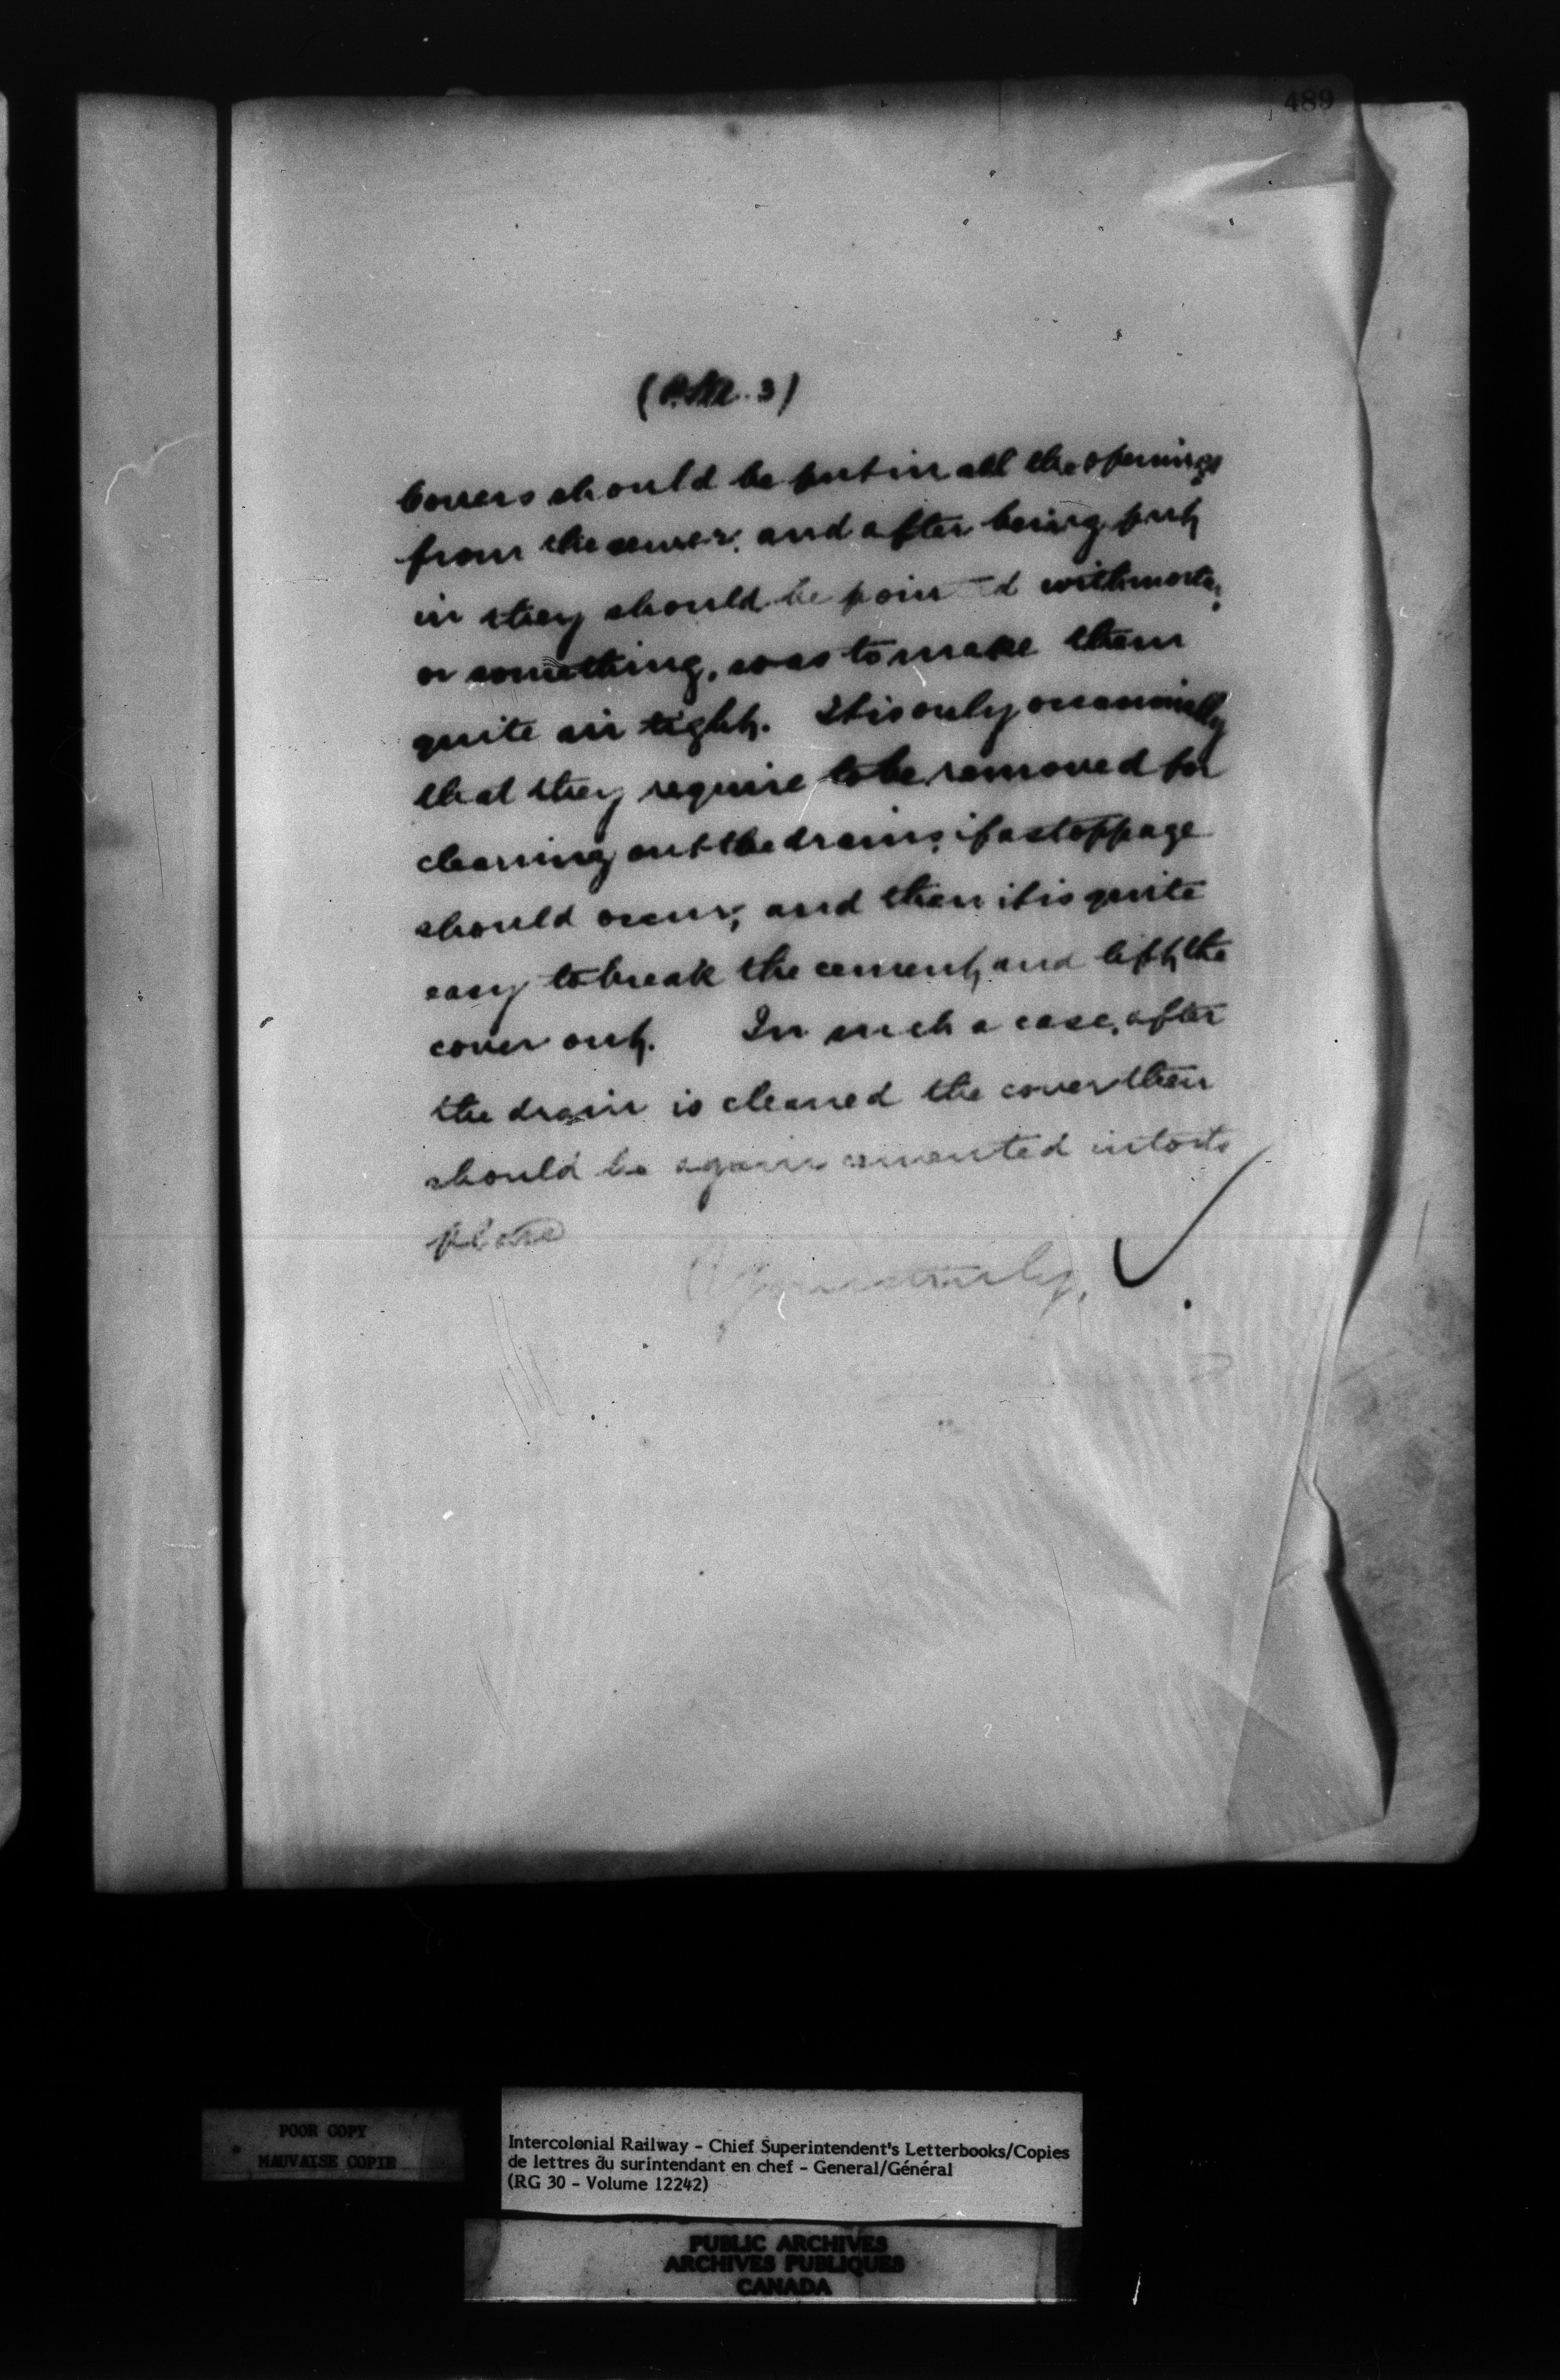 489
Covers should be put in all the openings
from the sewer, and after being put
in they should be pointed with mortar,
or something, so as to make them
quite air tight. It is only occasionally
that they require to be removed for
cleaning out the drains, if a stoppage
should occur, and then it is quite
easy to break the cement, and lift the
cover out. In such a case, after
the drain is cleaned the cover then
should be again cemented into its
place
Yours truly,
POOR COPY
MAUVAISE COPIE
Intercolonial Railway - Chief Superintendent's Letterbooks/Copies
de lettres du surintendant en chef - General/Général
(RG 30 - Volume 12242)
PUBLIC ARCHIVES
ARCHIVES PUBLIQUES
CANADA